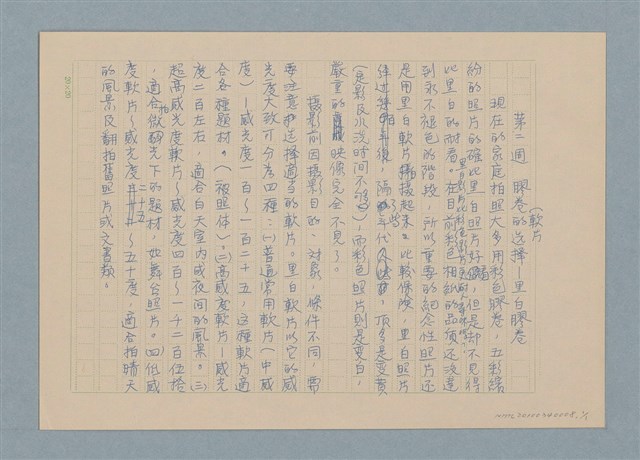 第二週　膠卷的選擇－黑白膠卷
(軟片
現在的家庭拍照大多用彩色膠卷，五彩繽
紛的照片的確比黑白照片好看，但是却不見得
比黑白的耐看。在目前彩色相紙的品質还沒達
到永不褪色的階段，所以重要的紀念性照片还
是用黑白軟片拍攝起來比較保險，黑白照片
後，隔年代久，頂多是变黄
(定影及水洗时间不夠)，而彩色照片則是变白，
嚴重的映像完全不見了。
攝影前因攝影目的、对象、條件不同，需
要注意选擇適当的軟片。黑白軟片以它的感
光度大致可分為四種：㈠普通常用軟片(中感
度)－感光度一百～一百二十五，这種軟片適
合各種題材。(被照体)。㈡高感度軟片－感光
度二百左右，適合白天室內或夜间的風景。㈢
超高感光度軟片～感光度四百～一千二百伍拾
，適合拍微弱光下的題材，如舞台照片。㈣低感
度軟片～感光度二十五～五十度，適合拍晴天
的風景及翻拍舊照片或文書類。
20×20
NMTL20100340008,1/1